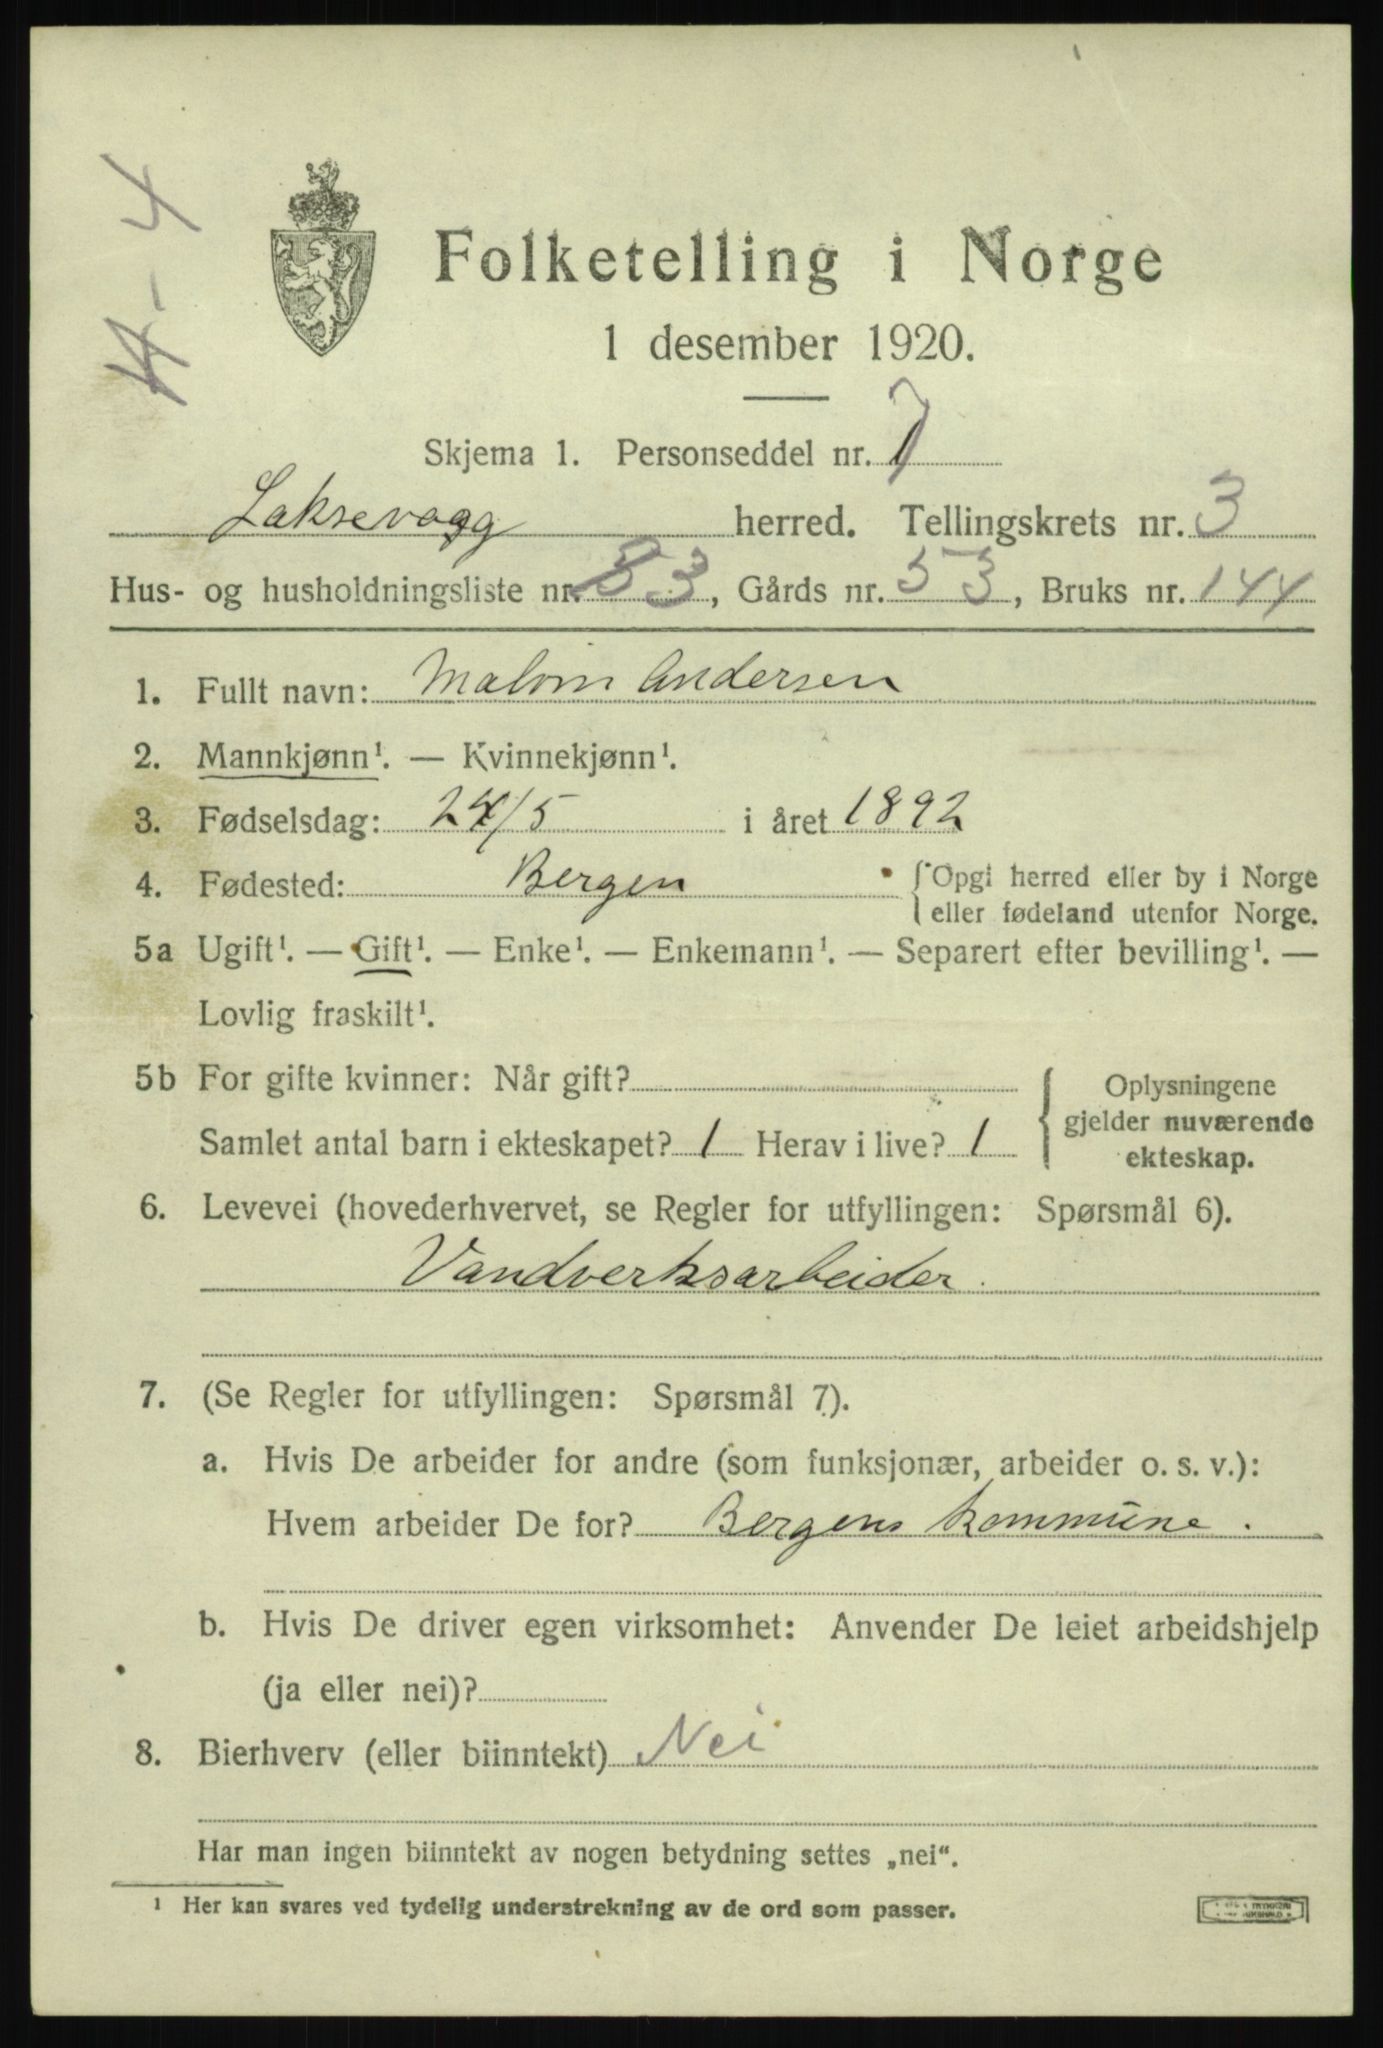 4-4
Folketelling i Norge
1 desember 1920.
Skjema 1. Personseddel nr. 7
Laksevaag herred. Tellingskrets nr. 3
Hus- og husholdningsliste nr. 33, Gårds nr. 53, Bruks nr. 144
1. Fullt navn: Malvin Andersen
2. Mannkjønn¹. — Kvinnekjønn¹.
3. Fødselsdag: 24/5 i året 1892
4. Fødested: Bergen {Opgi herred eller by i Norge
eller fødeland utenfor Norge.
5a Ugift¹. — Gift¹. — Enke¹. — Enkemann¹. — Separert efter bevilling¹. —
Lovlig fraskilt¹.
5b For gifte kvinner: Når gift? Oplysningene
gjelder nuværende
Samlet antal barn i ekteskapet? 1 Herav i live? 1 ekteskap.
6. Levevei (hovederhvervet, se Regler for utfyllingen: Spørsmål 6).
Vandverksarbeider.
7. (Se Regler for utfyllingen: Spørsmål 7).
a. Hvis De arbeider for andre (som funksjonær, arbeider o. s. v.):
Hvem arbeider De for? Bergens kommune.
b. Hvis De driver egen virksomhet: Anvender De leiet arbeidshjelp
(ja eller nei)?
8. Bierhverv (eller biinntekt) Nei
Har man ingen biinntekt av nogen betydning settes „nei“.
¹ Her kan svares ved tydelig understrekning av de ord som passer.